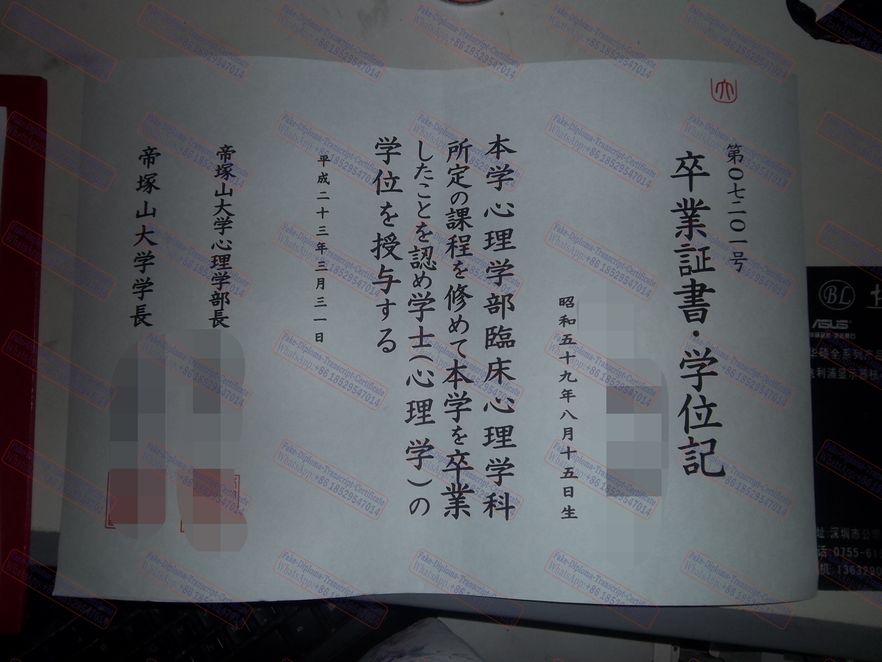 第0七二0一号
卒業証書・学位記
昭和五十九年八月十五日生
本学心理学部臨床心理学科
所定の課程を修めて本学を卒業
したことを認め学士(心理学)の
学位を授与する
平成二十三年三月三一日
帝塚山大学心理学部長
帝塚山大学学長
BL
ASUS
华硕全系列
址:深圳市公
话:0755-61
机:1363290
Fake-Diploma-Transcript-Certificate
WhatsApp:+86 18529547014